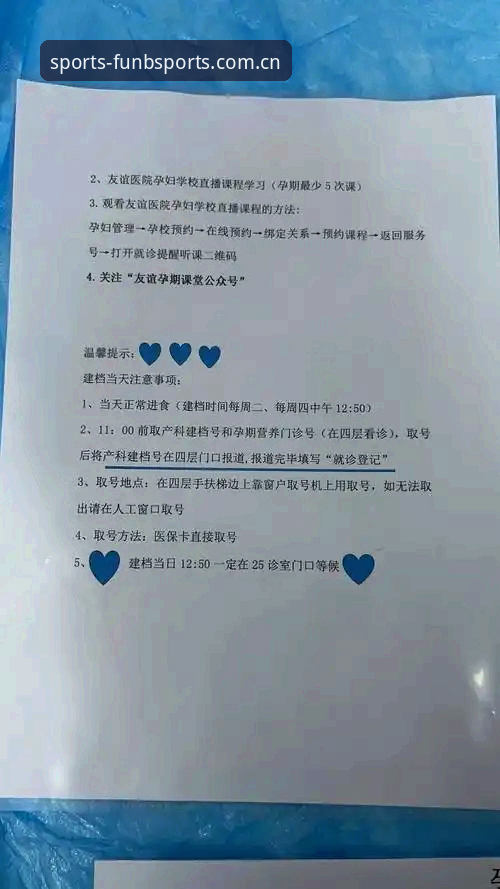 sports-funbsports.com.cn
2、友谊医院孕妇学校直播课程学习（孕期最少 5 次课）
3. 观看友谊医院孕妇学校直播课程的方法:
孕妇管理→孕校预约→在线预约→绑定关系→预约课程→返回服务
号→打开就诊提醒听课二维码
4. 关注“友谊孕期课堂公众号”
温馨提示:
建档当天注意事项:
1、当天正常进食（建档时间每周二、每周四中午 12:50）
2、11: 00 前取产科建档号和孕期营养门诊号（在四层看诊），取号
后将产科建档号在四层门口报道,报道完毕填写“就诊登记”
3、取号地点: 在四层手扶梯边上靠窗户取号机上用取号，如无法取
出请在人工窗口取号
4、取号方法: 医保卡直接取号
5、 建档当日 12:50 一定在 25 诊室门口等候